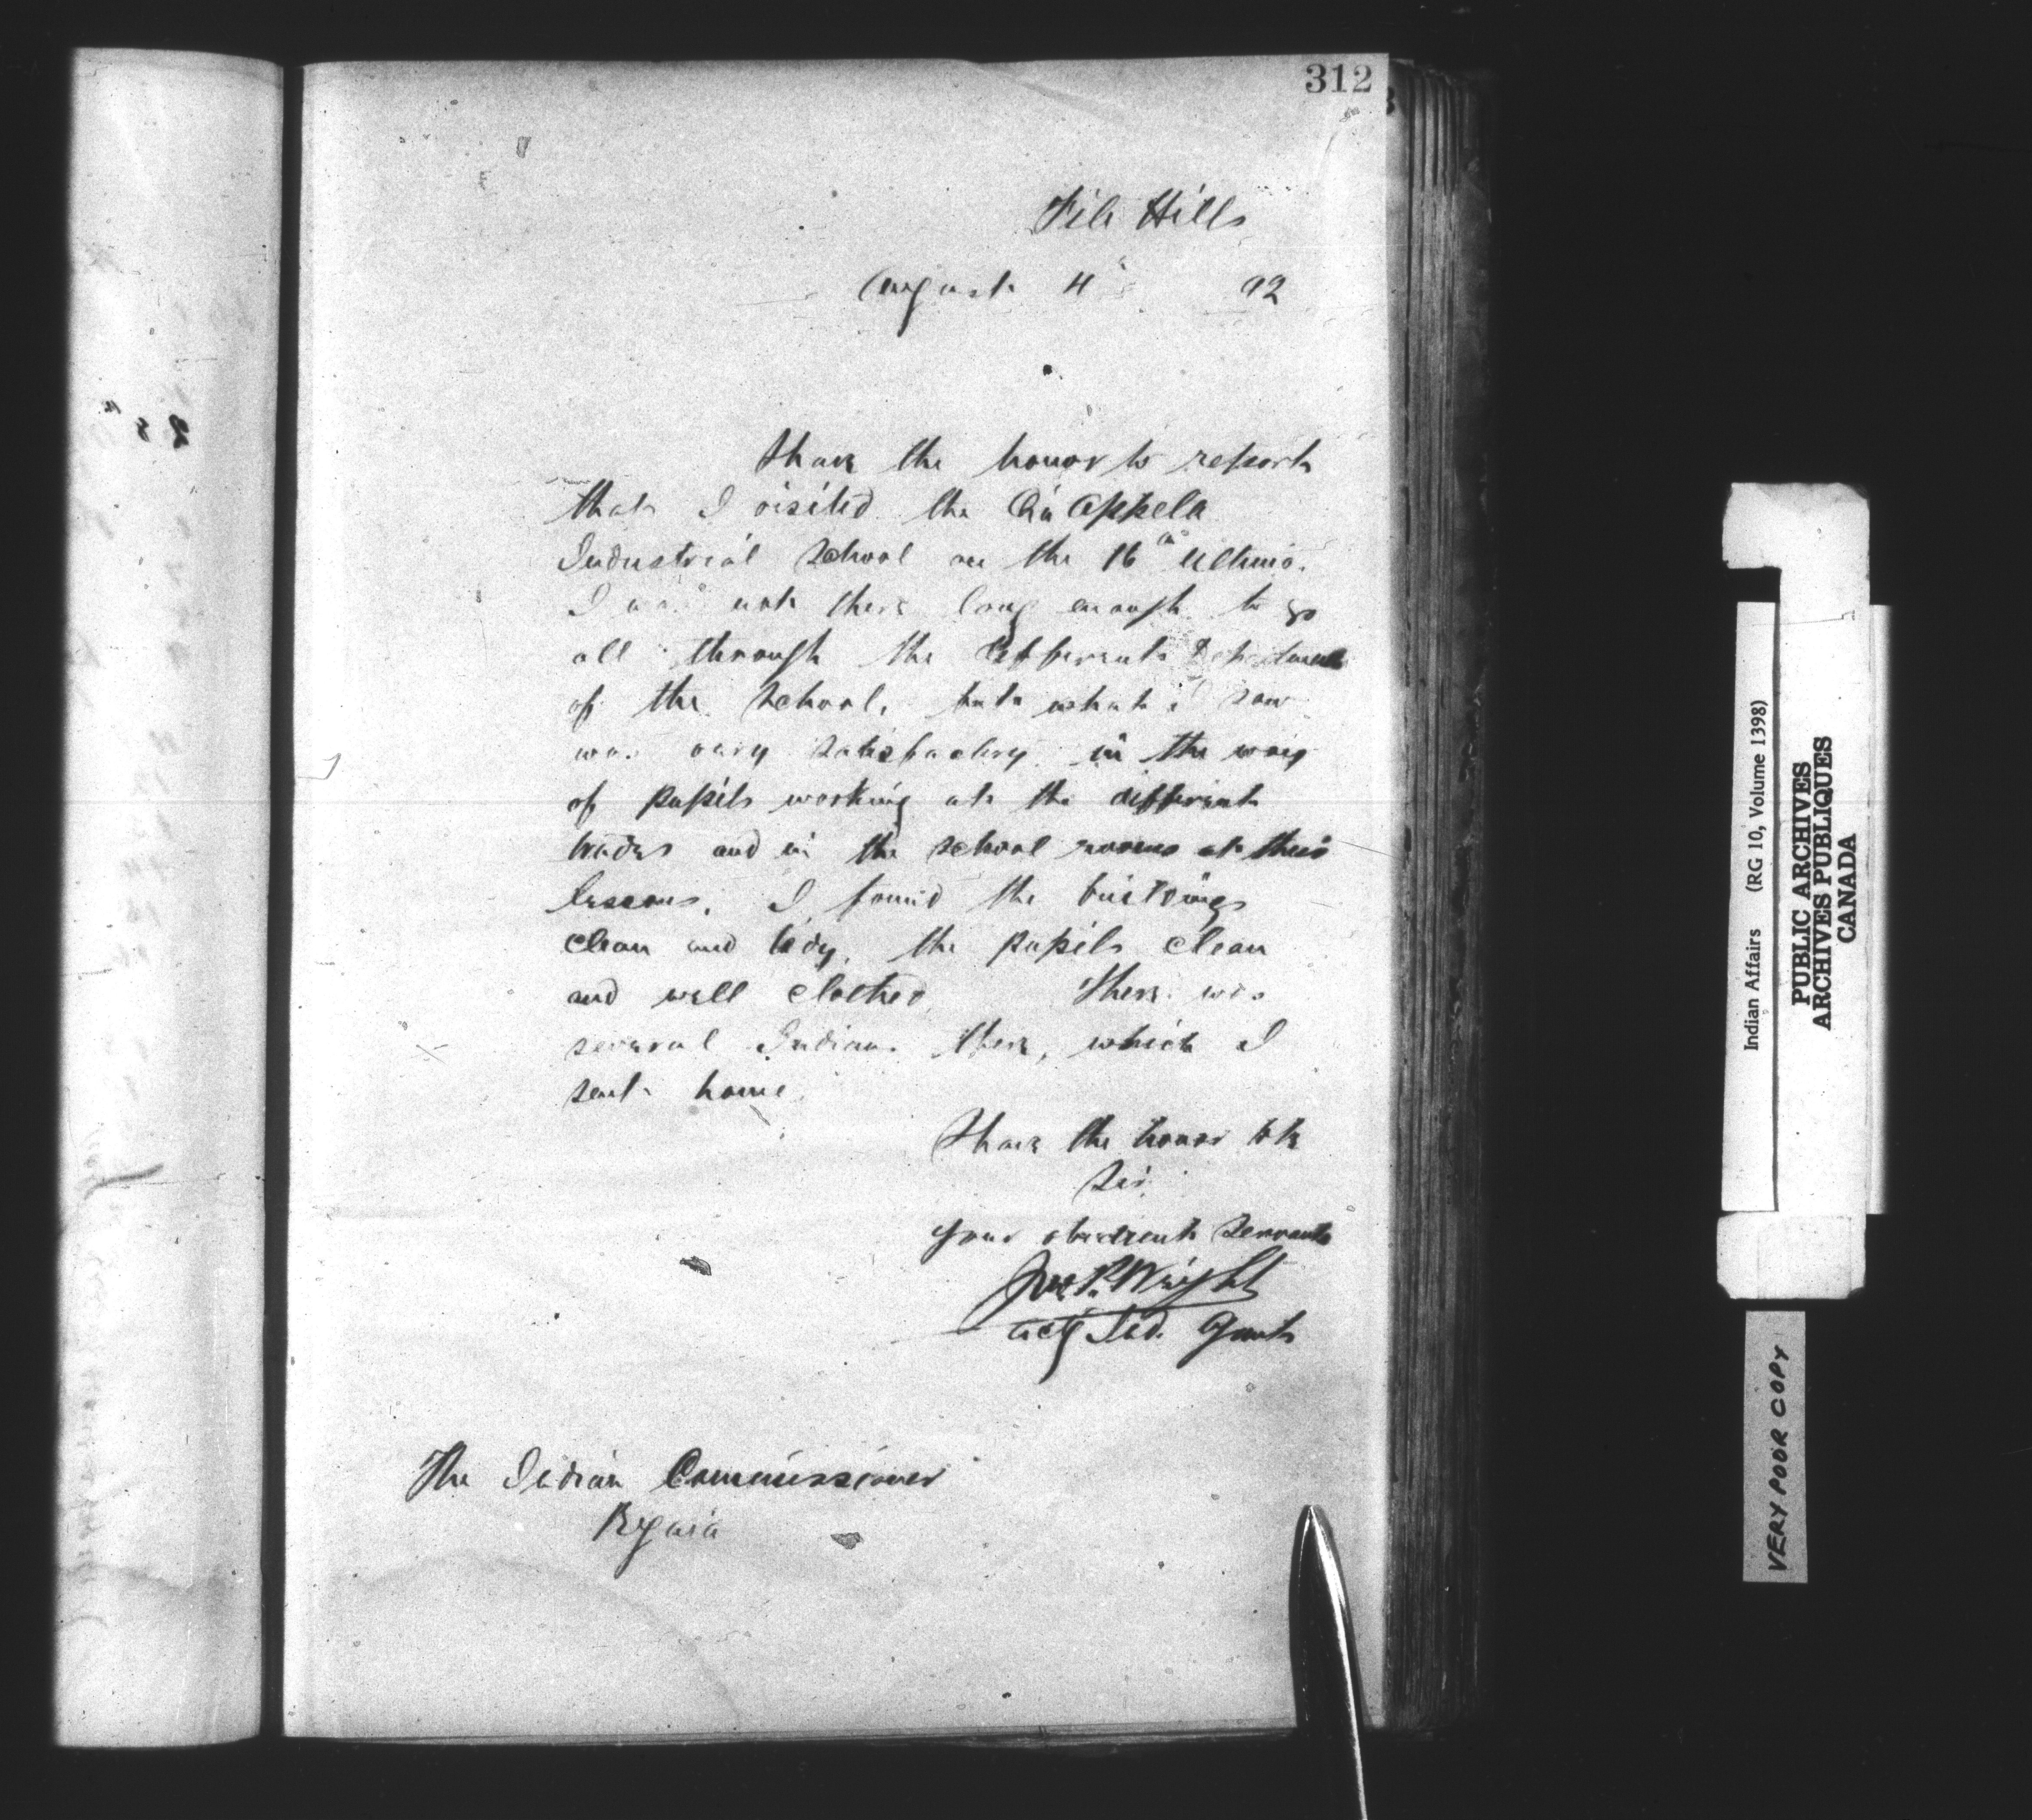 312
File Hills
August 4th 92
I have the honor to report
that I visited the Qu'Appelle
Industrial School on the 16th Ultimo.
I was not there long enough to go
all through the different Departments
of the School, but what I saw
was very satisfactory in the way
of pupils working at the different
trades and in the school rooms at their
lessons. I found the buildings
clean and tidy, the pupils clean
and well clothed. There was
several Indians there, which I
sent home.
I have the honor to be
Sir
Your obedient Servant
Jno P. Wright
actg Ind. Agent
The Indian Commissioner
Regina
Indian Affairs (RG 10, Volume 1398)
PUBLIC ARCHIVES
ARCHIVES PUBLIQUES
CANADA
VERY POOR COPY